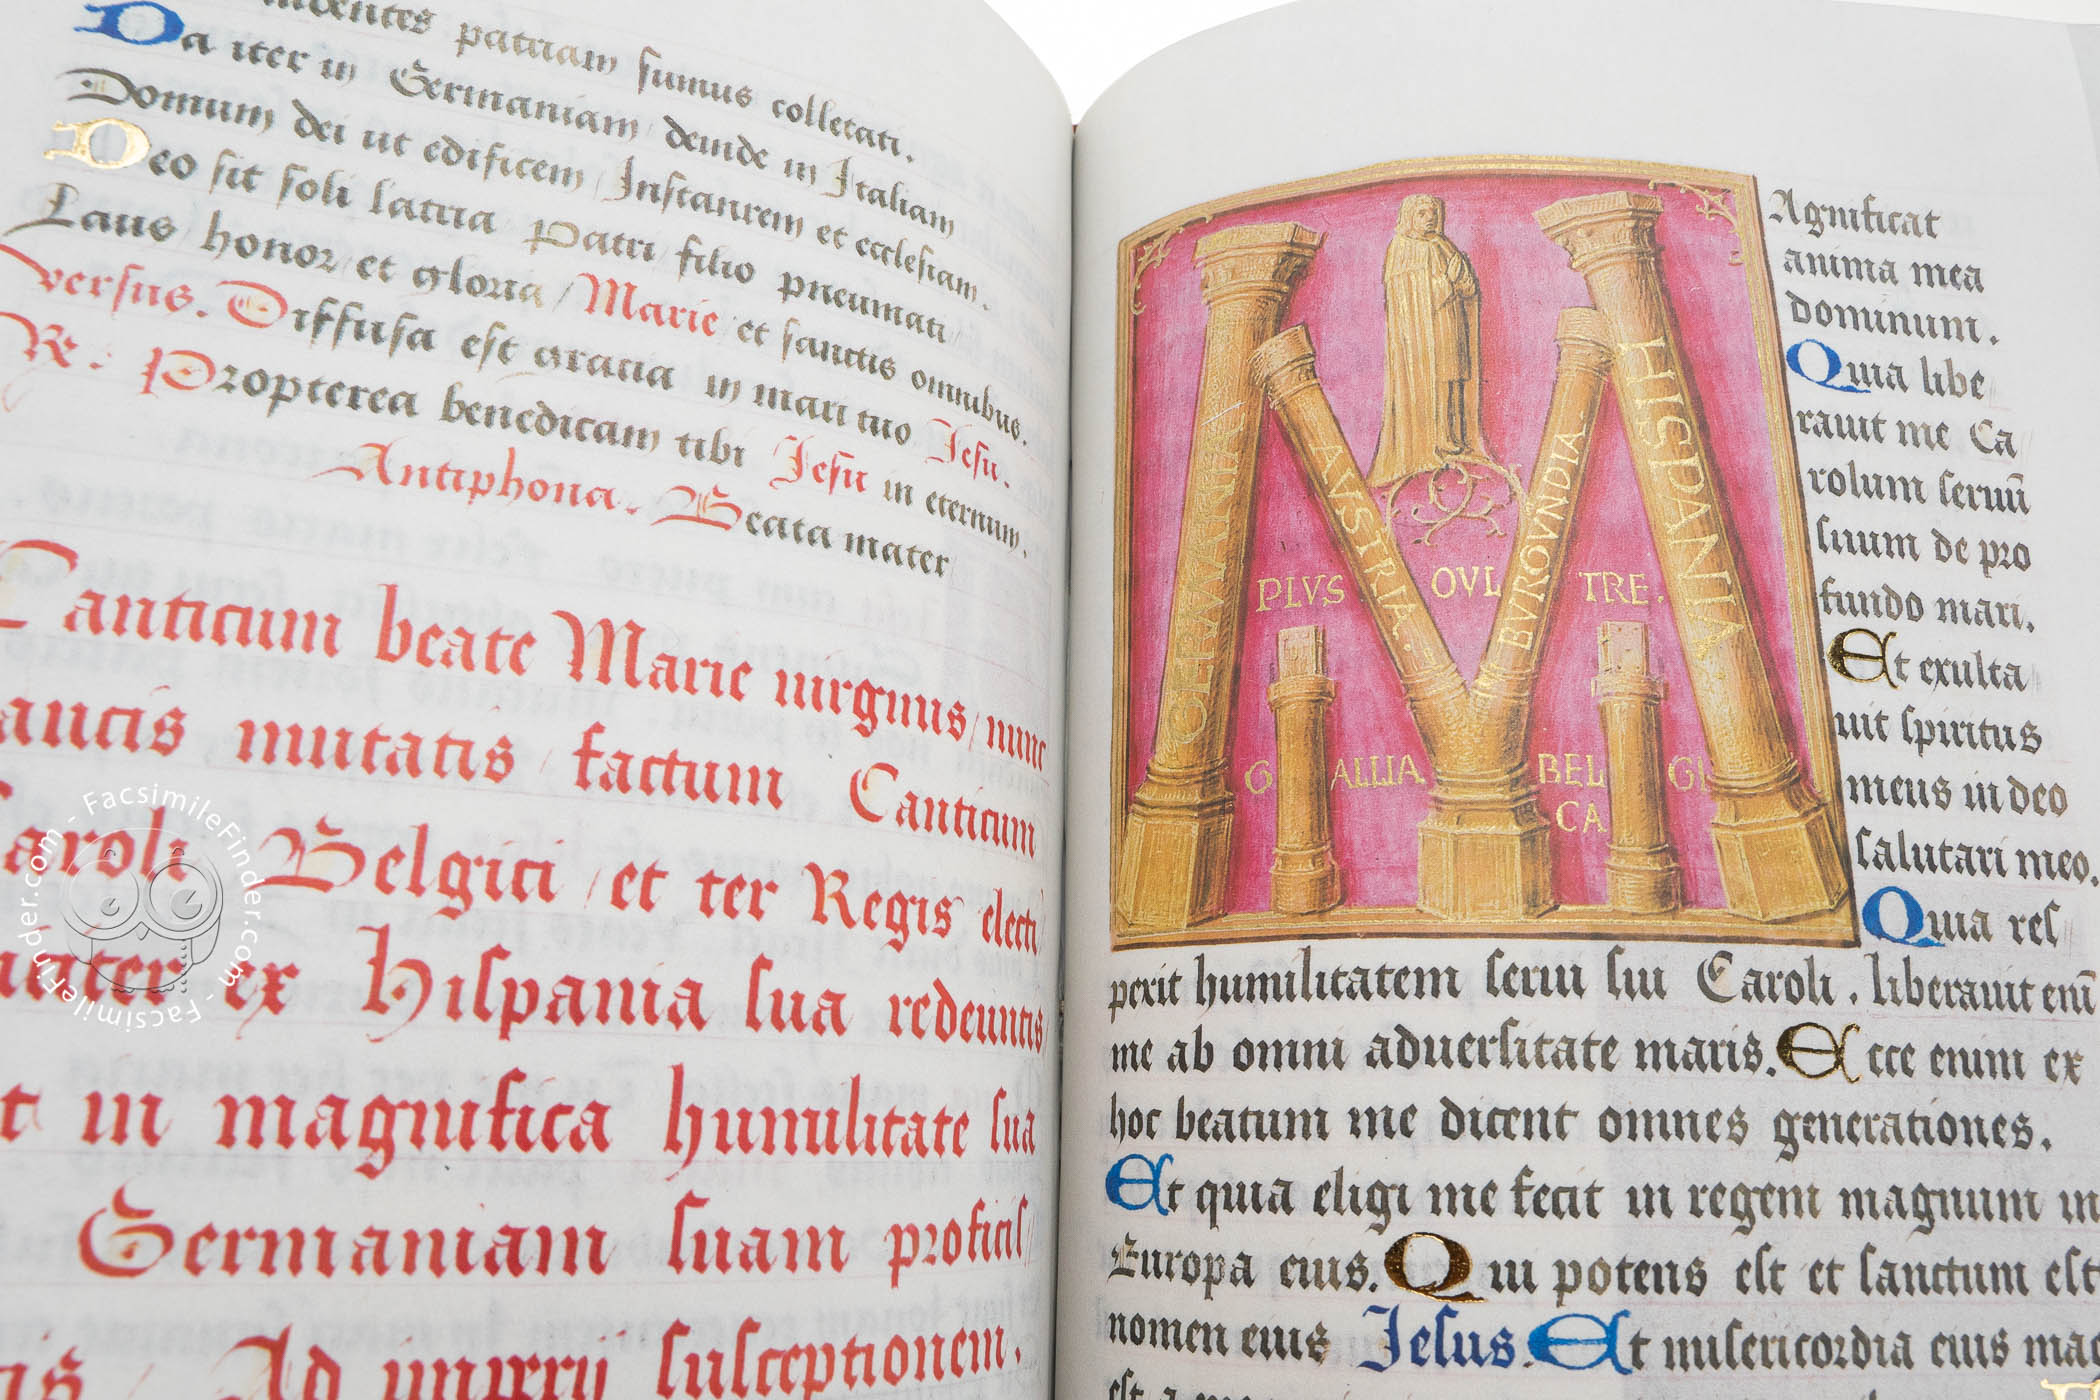 patriam sumus colletati.
Da iter in Germaniam deinde in Italiam
Domum dei ut edificem Instaurem et ecclesiam.
Deo sit soli latria Patri filio pneumati
Laus honor et gloria Marie et sanctis omnibus.
versus. Diffusa est gracia in mari tuo Jesu.
℞. Propterea benedicam tibi Jesu in eternum.
Antiphona. Beata mater
Canticum beate Marie virginis nunc
paucis mutatis factum Canticum
Caroli Belgici et ter Regis electi
ex Hispania sua redeuntis
in magnifica humilitate sua
Germaniam suam proficis
Ad imperij susceptionem.
Agnificat
anima mea
dominum.
Quia libe
rauit me Ca
rolum seruū
suum de pro
fundo mari.
Et exulta
uit spiritus
meus in deo
salutari meo.
Quia res
perit humilitatem serui sui Caroli. liberauit enī
me ab omni aduersitate maris. Ecce enim ex
hoc beatum me dicent omnes generationes.
Et quia eligi me fecit in regem magnum in
Europa eius. Qui potens est et sanctum est
nomen eius Jesus. Et misericordia eius
GERMANIA
AVSTRIA.
BVRGVNDIA.
HISPANIA
PLVS OVL TRE.
GALLIA BELGI
CA
FacsimileFinder.com - FacsimileFinder.com -